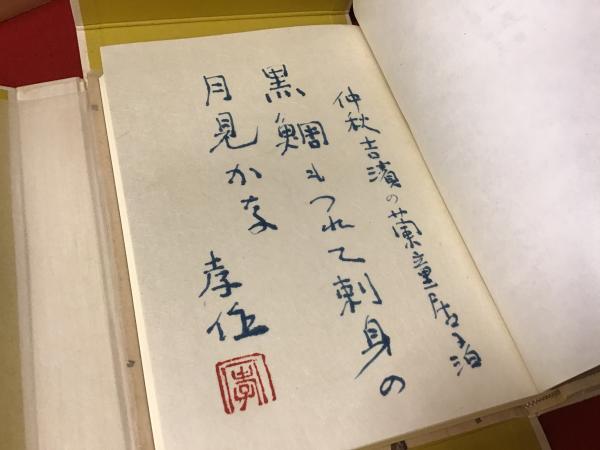 仲秋吉濱の蘭童居に泊
黒鯛もつれて刺身の
月見かな
孝作
孝